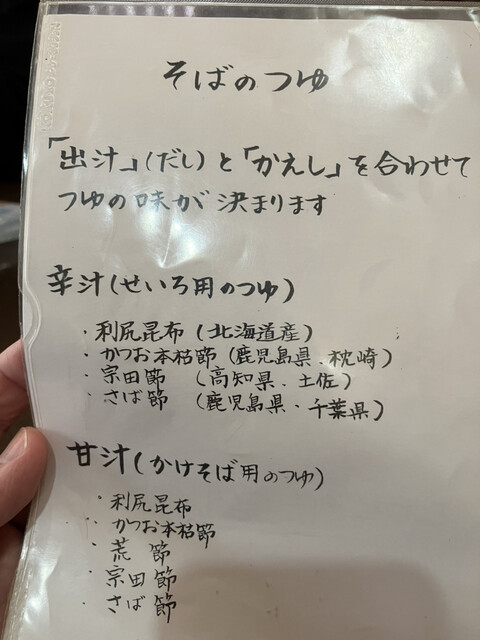 そばのつゆ
「出汁」(だし)と「かえし」を合わせて
つゆの味が決まります
辛汁(せいろ用のつゆ)
・利尻昆布(北海道産)
・かつお本枯節(鹿児島県、枕崎)
・宗田節(高知県、土佐)
・さば節(鹿児島県・千葉県)
甘汁(かけそば用のつゆ)
・利尻昆布
・かつお本枯節
・荒節
・宗田節
・さば節